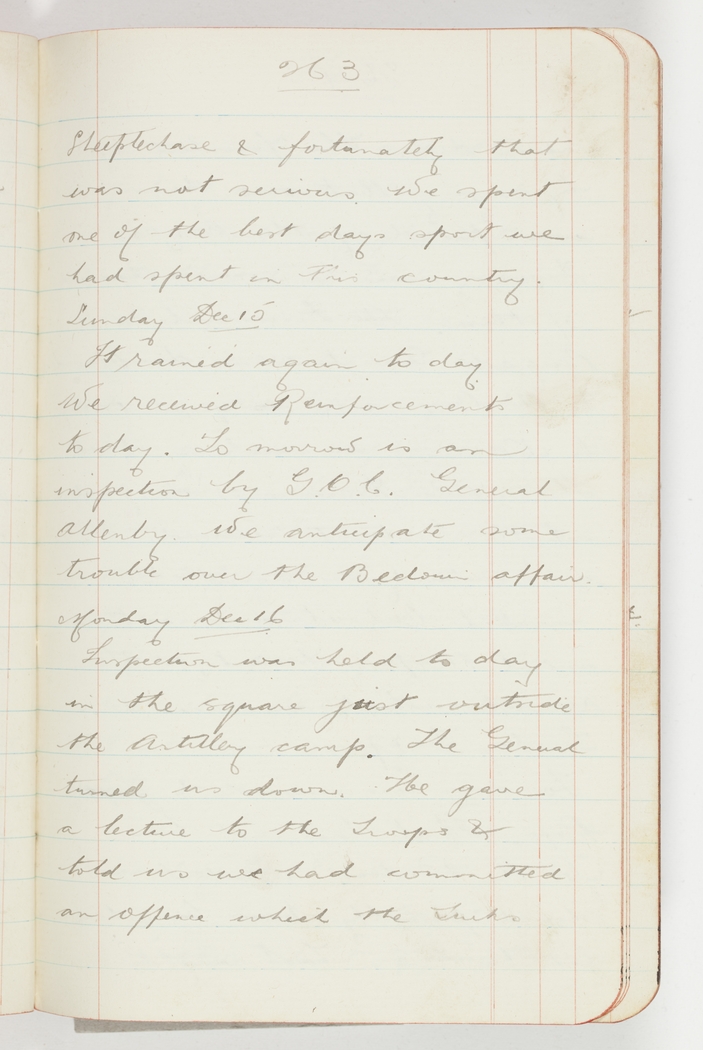 263
Steeplechase & fortunately that
was not serious. We spent
one of the best days sport we
had spent in this country.
Sunday Dec 15
It rained again to day.
We received Reinforcements
to day. To morrow is an
inspection by G.O.C. General
Allenby. We anticipate some
trouble over the Bedouin affair.
Monday Dec 16
Inspection was held to day
in the square just outside
the Artillery camp. The General
turned us down. He gave
a lecture to the Troops &
told us we had committed
an offence which the Turks